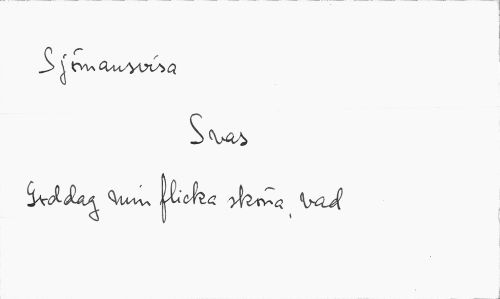 Sjömansvisa
Svas
Goddag min flicka sköna, vad